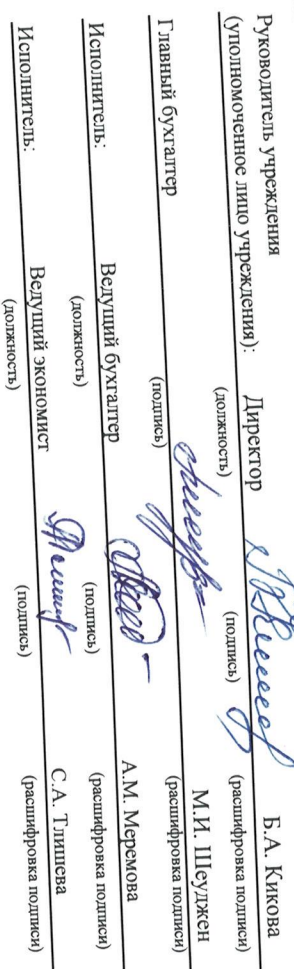 Руководитель учреждения
(уполномоченное лицо учреждения): Директор Б.А. Кикова
(должность) (подпись) (расшифровка подписи)
Главный бухгалтер М.И. Шеуджен
(подпись) (расшифровка подписи)
Исполнитель: Ведущий бухгалтер А.М. Меремова
(должность) (подпись) (расшифровка подписи)
Исполнитель: Ведущий экономист С.А. Тлишева
(должность) (подпись) (расшифровка подписи)